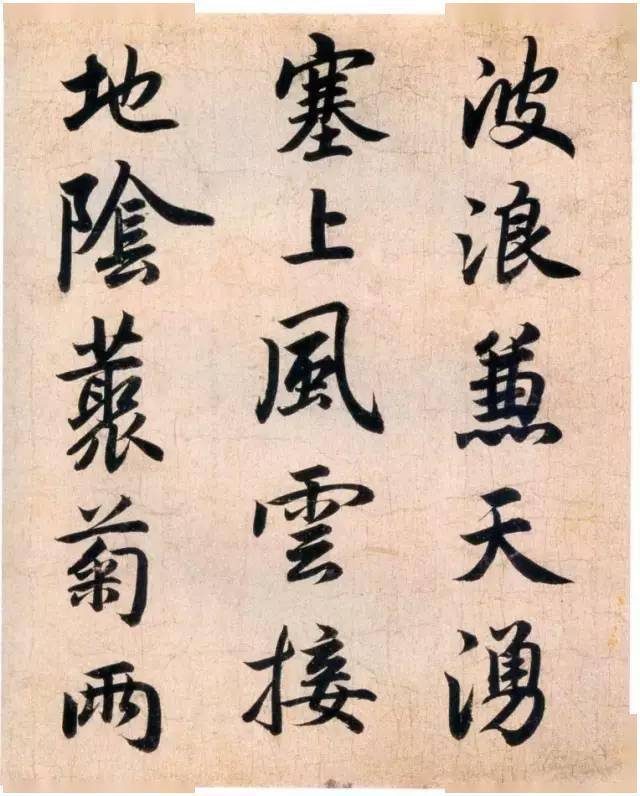 波浪蒹天湧
塞上風雲接
地陰藂菊兩